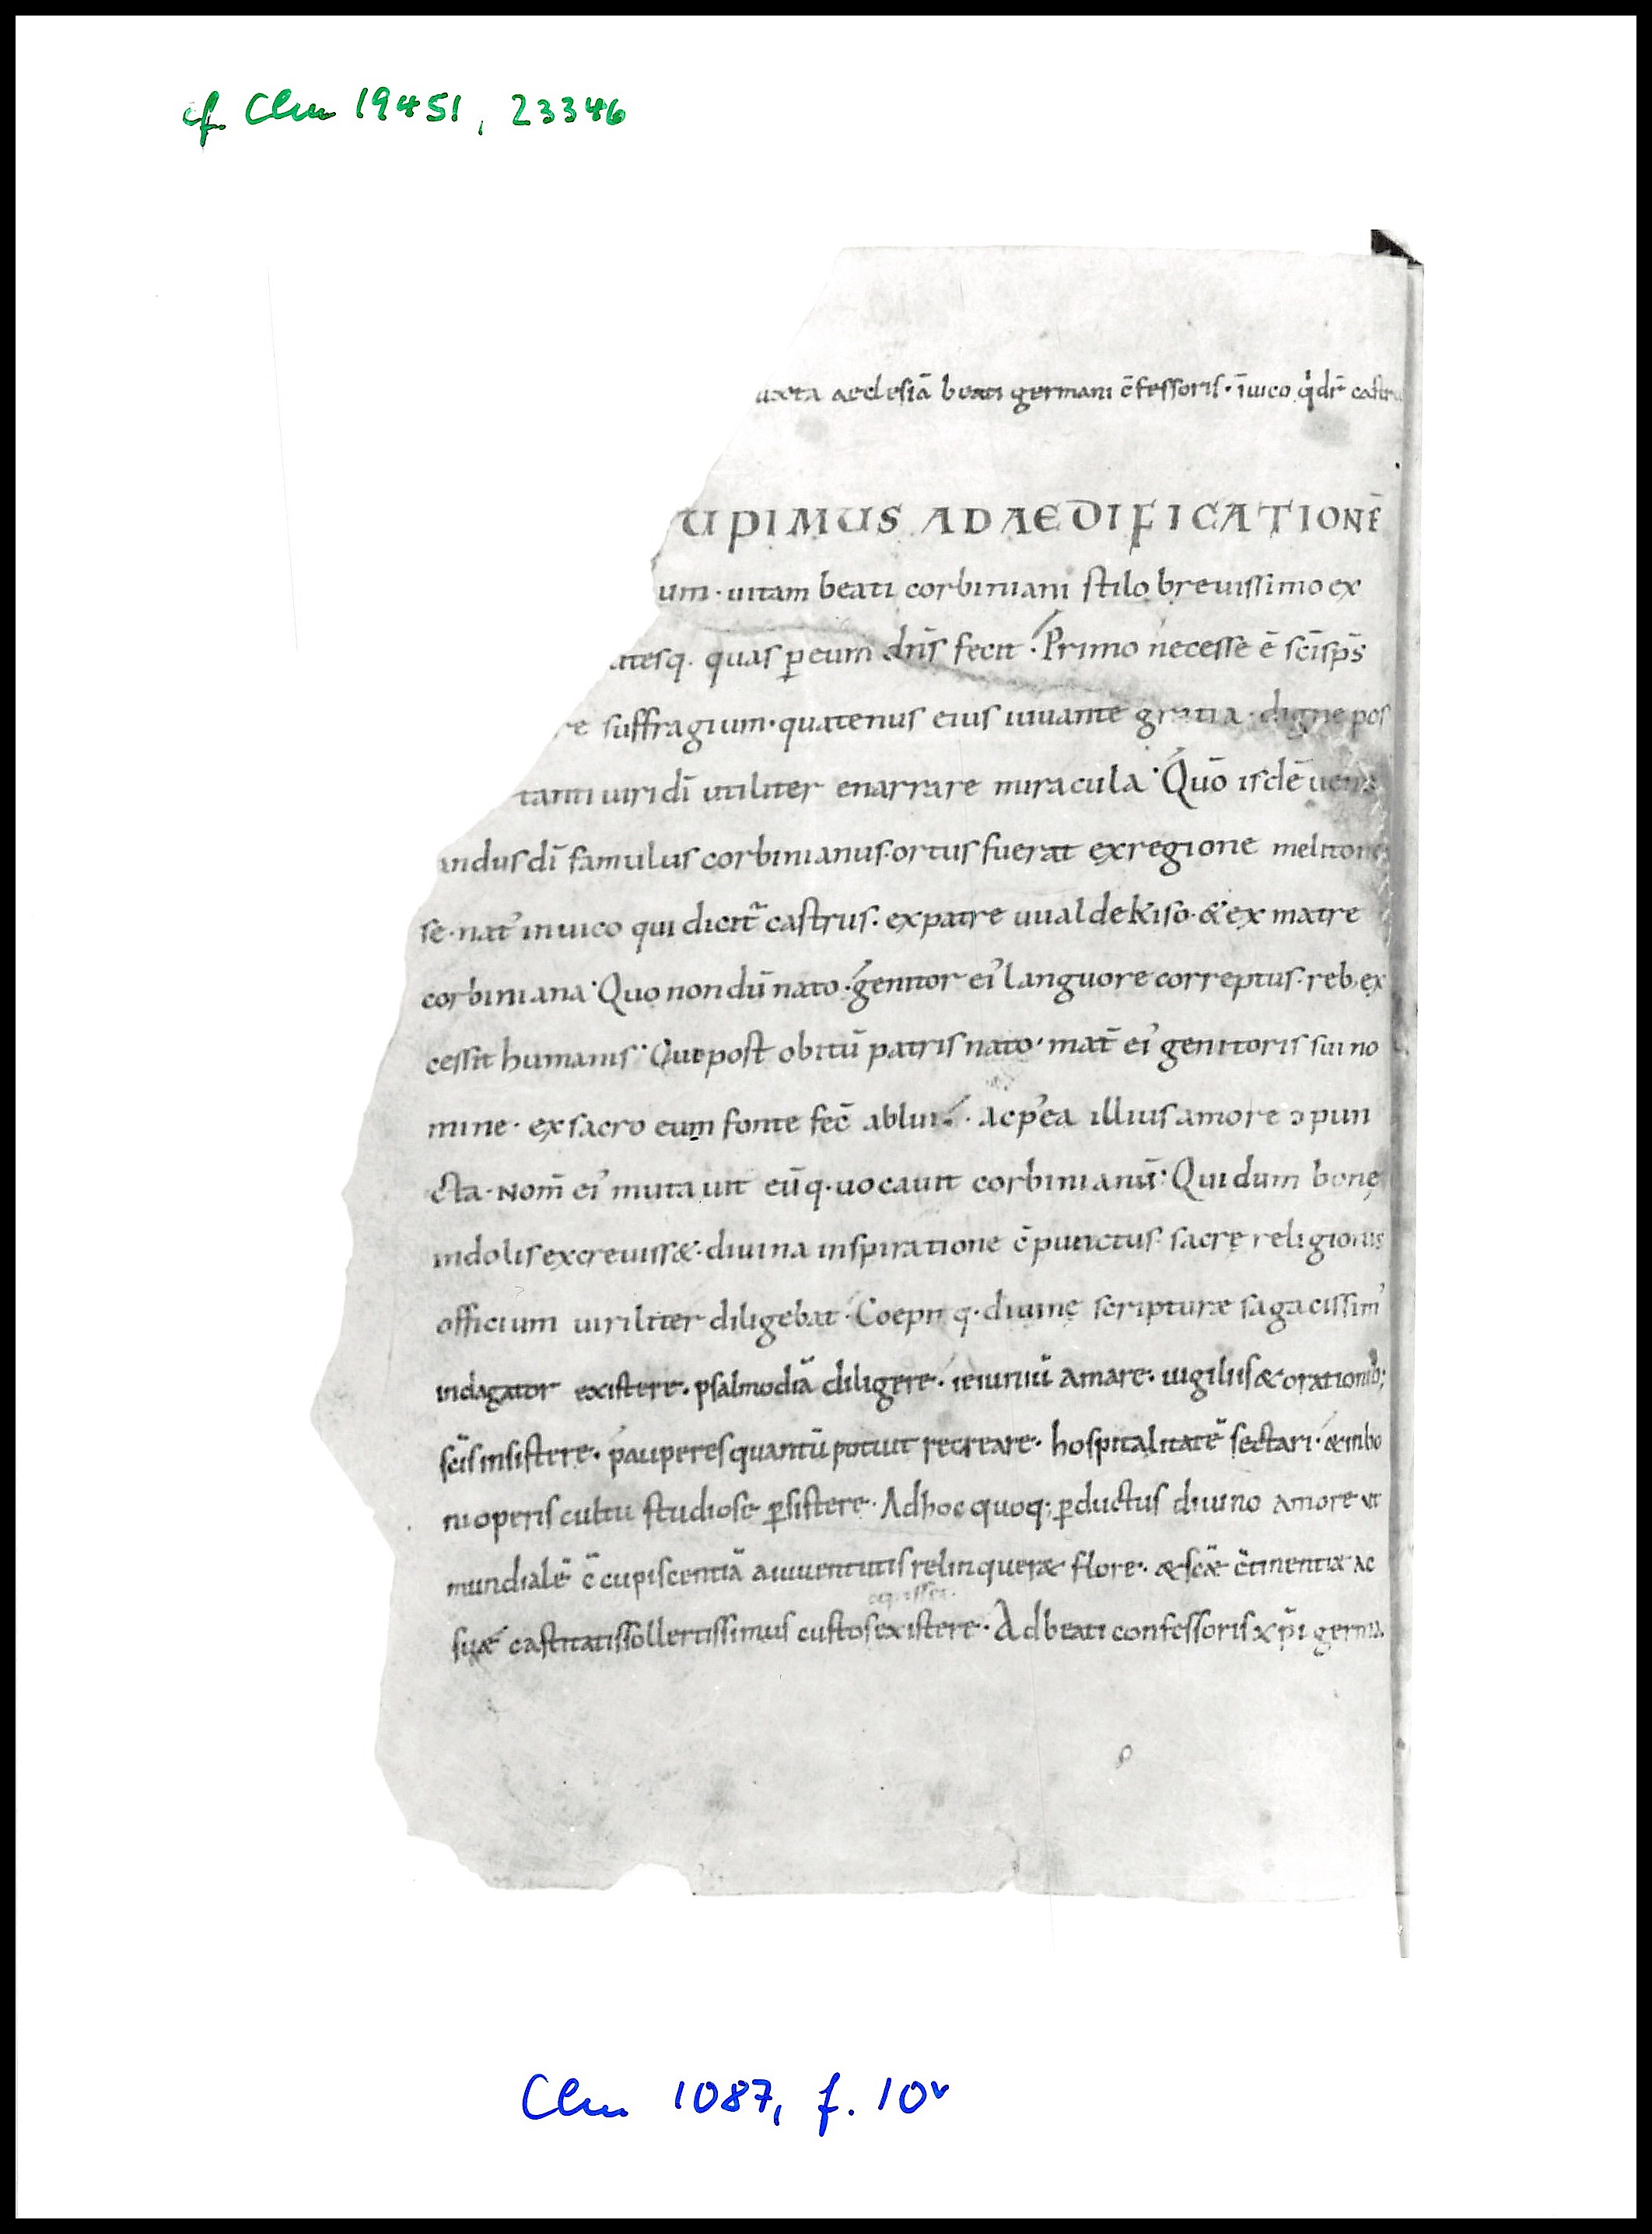 cf Clm 19451, 23346
uxta aeclesiā beati germani c̄fessoris · īuico q̊dr̄ castru
UPIMUS ADAEDIFICATIONĒ
um · uitam beati corbiniani stilo breuissimo ex
atesq. quas p̲eum dn̄s fecit · Primo necesse ē sc̄isp̄s
re suffragium · quatenus eius iuuante gratia · digne pos
tanti uiri dī utiliter enarrare miracula · Quō isdē uene
andus dī famulus corbinianus · ortus fuerat ex regione melitone
se · nat' in uico qui dicit̄ castrus · ex patre uualdekiso · & ex matre
corbiniana · Quo nondū nato · genitor ei' languore correptus · reb; ex
cessit humanis · Que post obitū patris nato · mat̄ ei' genitoris sui no
mine · ex sacro eum fonte fec̄ ablui · ac p'ea illius amore ɔpun
cta · nom̄ ei' mutauit eūq. uocauit corbinianū · Qui dum bonę
indolis excreuiss& · diuina inspiratione c̄punctus · sacrę religionis
officium uiriliter diligebat · Coepitq. diuinę scripturæ sagacissim'
indagator existere · psalmodiā diligere · ieiuniū amare · uigiliis & orationib;
sc̄is insistere · pauperes quantū potuit recreare · hospitalitatē sectari · & in bo
ni operis cultu studiose p̲sistere · Ad hoc quoq; p̲ductus diuino amore ut
mundialē c̄cupiscentiā a iuuentutis relinqueræ flore · & scǣ c̄tinentiæ ac
suæ castitatis sollertissimus custos existere · Ad beati confessoris xp̄i germa
Clm 1087, f. 10v